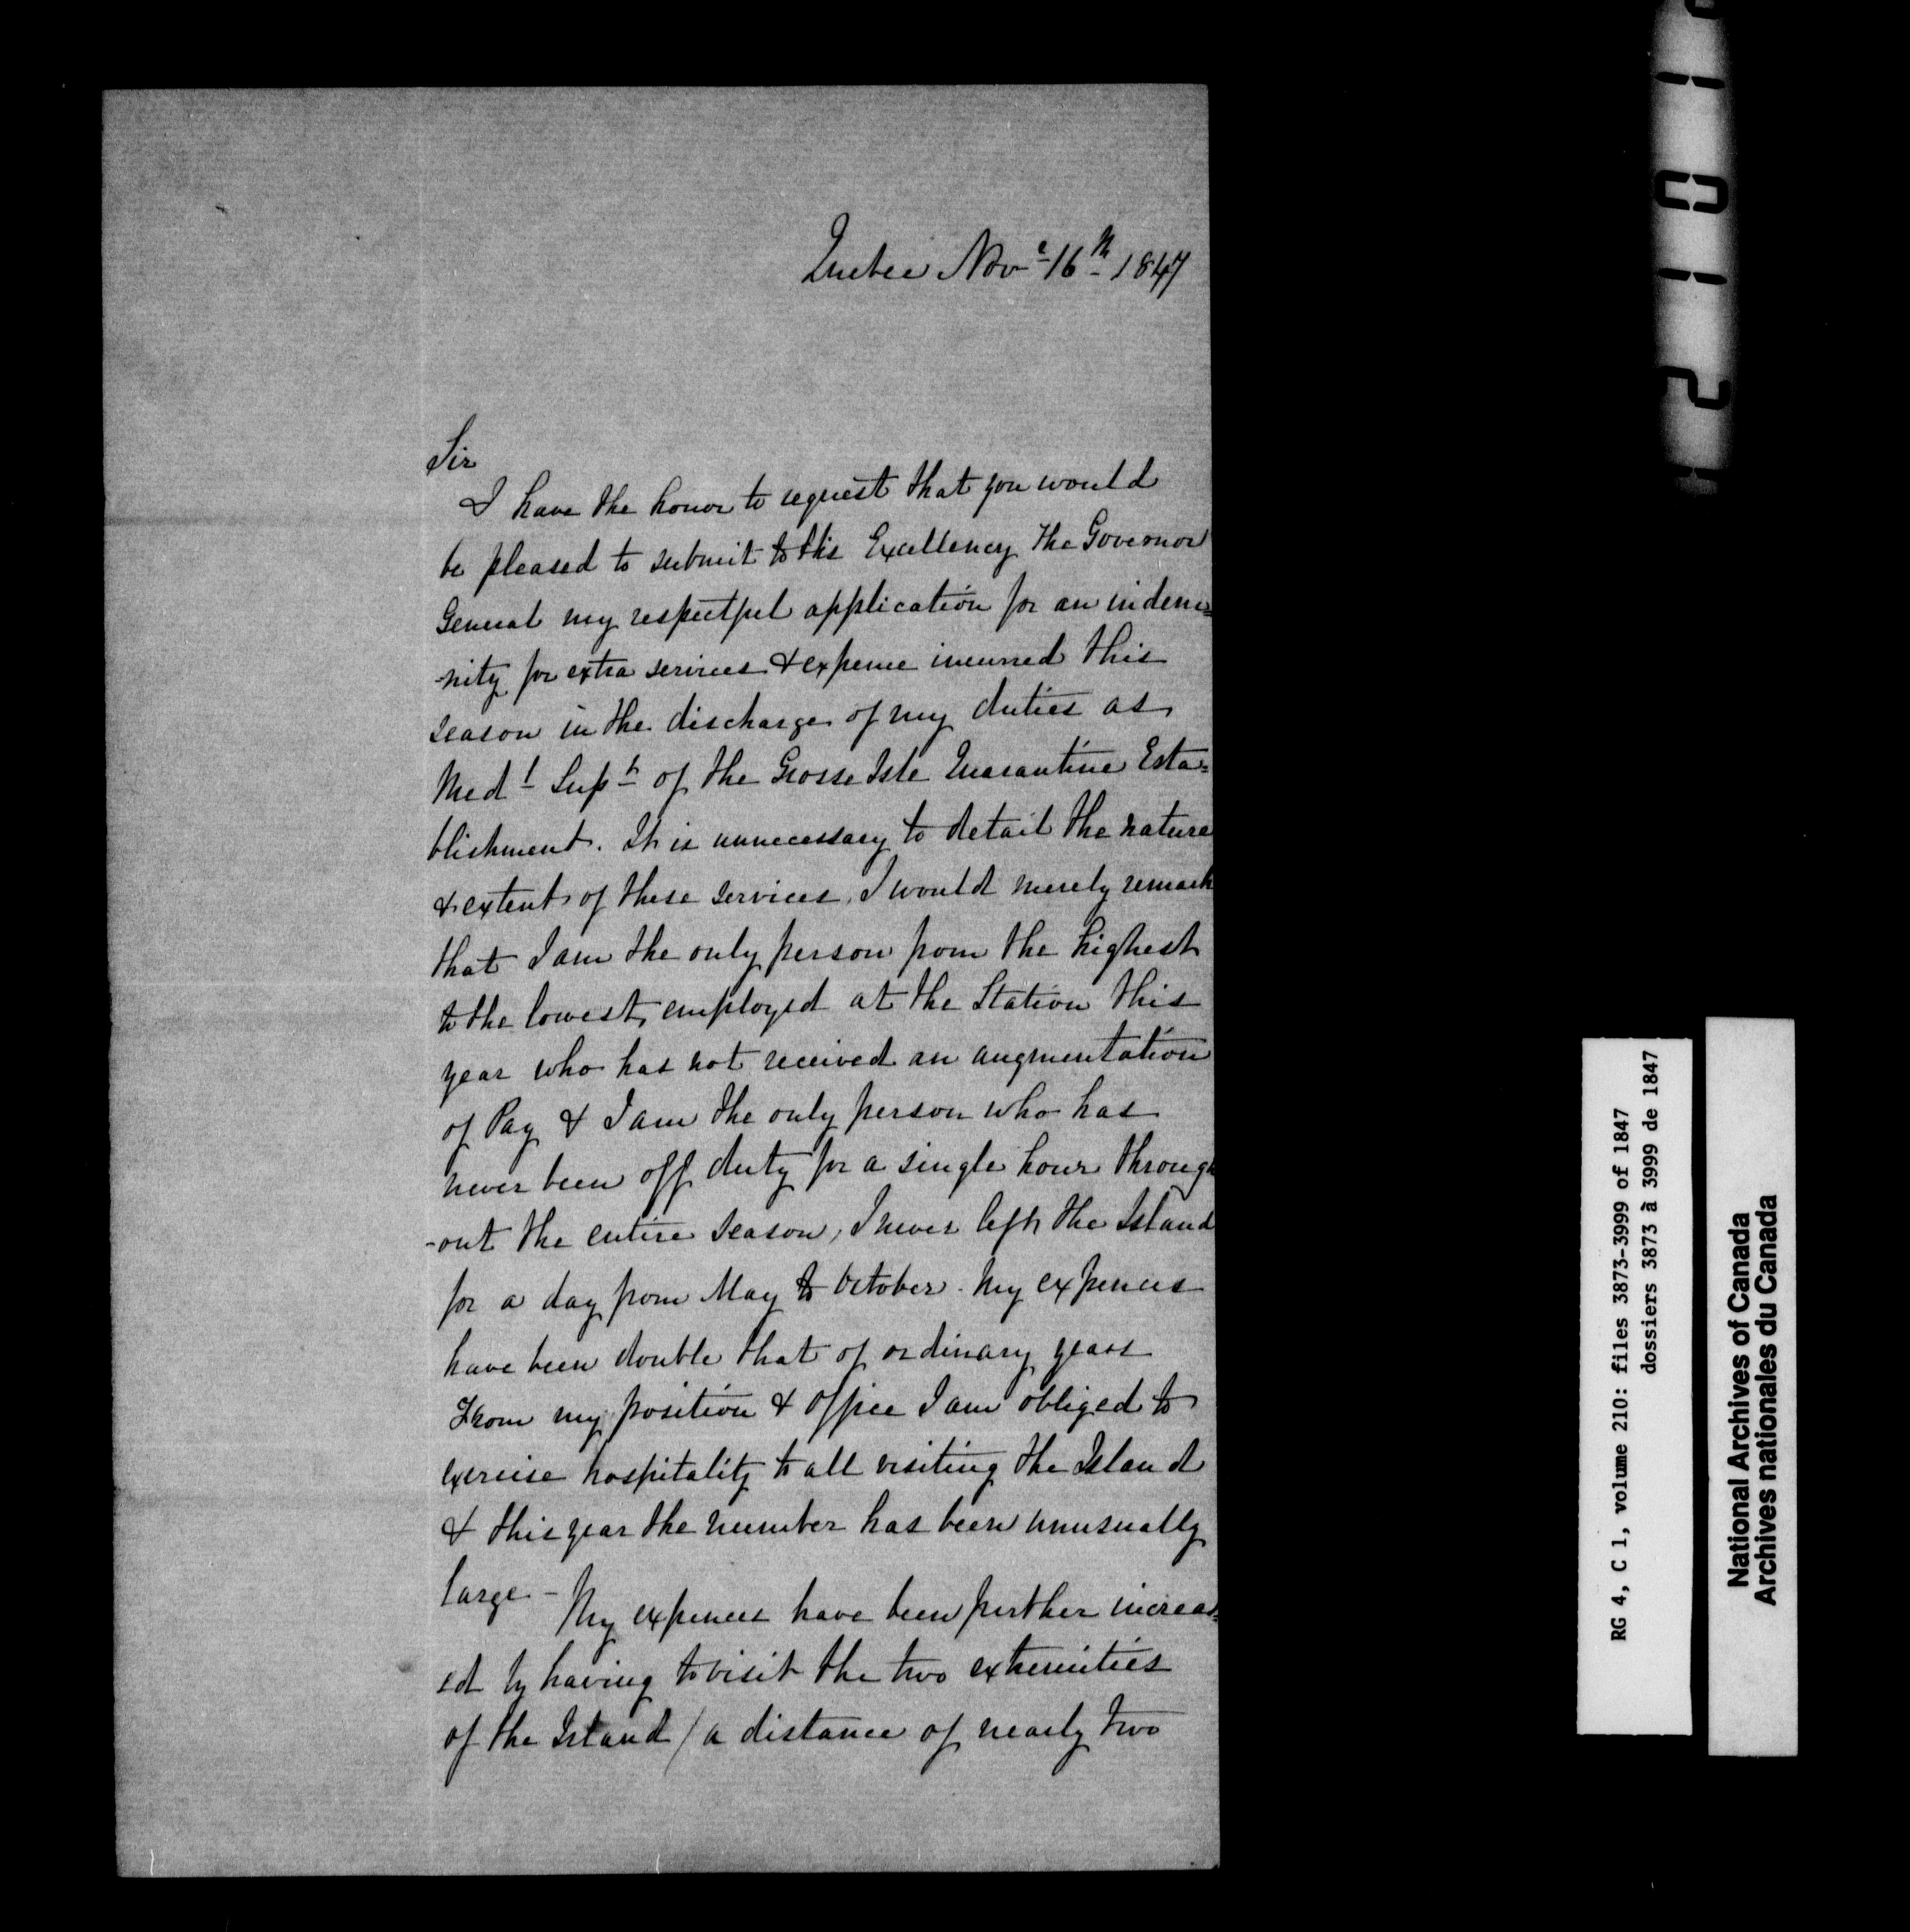 Quebec Nov^r 16^th 1847
Sir
I have the honor to request that you would
be pleased to submit to His Excellency the Governor
General my respectful application for an indem=
-nity for extra services & expence incurred this
season in the discharge of my duties as
Med^l Sup^t of the Grosse Isle Quarantine Esta=
blishment. It is unnecessary to detail the nature
& extent of these services, I would merely remark
that I am the only person from the highest
to the lowest, employed at the Station this
year who has not received an augmentation
of Pay & I am the only person who has
never been off duty for a single hour through
-out the entire season, I never left the Island
for a day from May to October. My expences
have been double that of ordinary years
From my position & office I am obliged to
exercise hospitality to all visiting the Island
& this year the number has been unusually
large - My expences have been further increas=
ed by having to visit the two extremities
of the Island / a distance of nearly two
RG 4, C 1, volume 210: files 3873-3999 of 1847
dossiers 3873 à 3999 de 1847
National Archives of Canada
Archives nationales du Canada